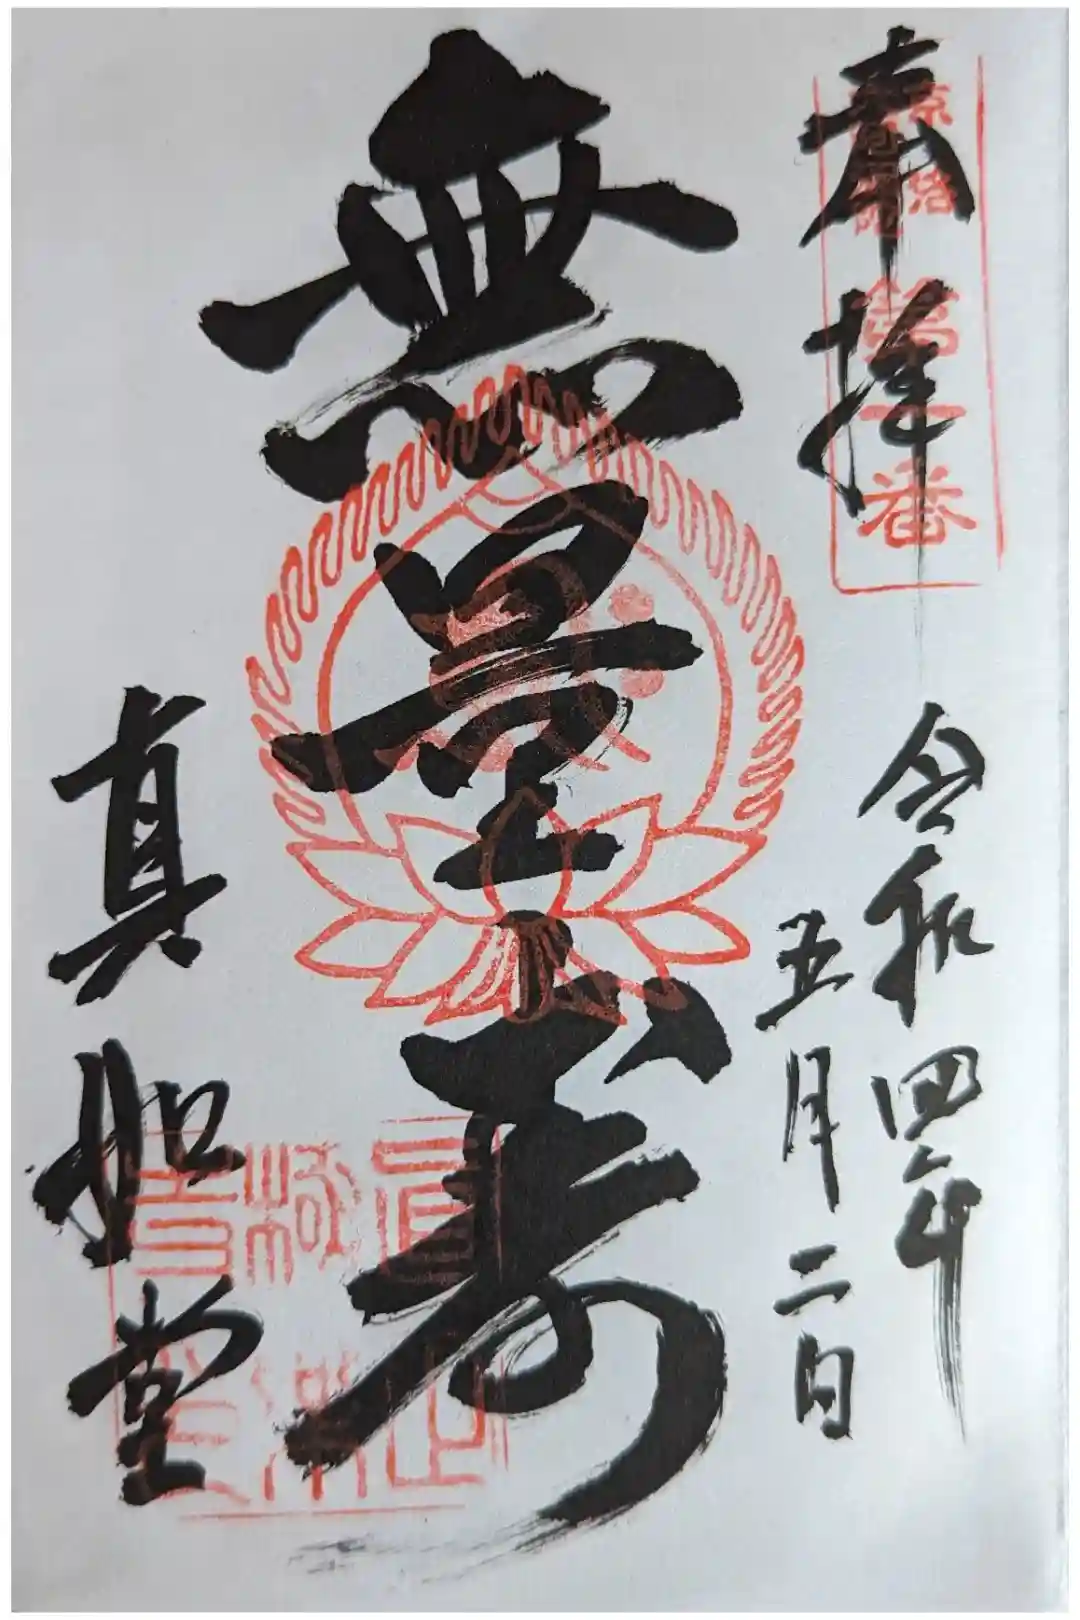 奉拝
京洛
六阿弥陀
第一番
令和四年
五月二日
無量寿
真如堂
真正極楽寺